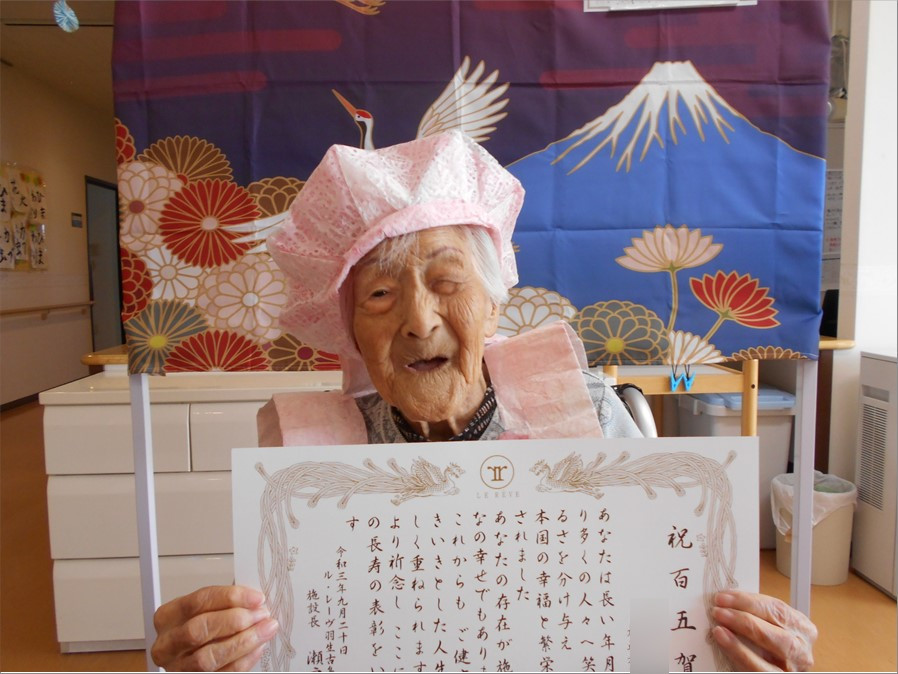 LE REVE
祝百五賀
あなたは長い年月
り多くの人々へ笑
るさを分け与え
本国の幸福と繁栄
されました
あなたの存在が施
なの幸せでもあり
これからも ご健
きいきとした人生
しく重ねられます
より祈念し ここに
の長寿の表彰をい
す
令和三年九月二十日
ル・レーヴ羽生古
施設長